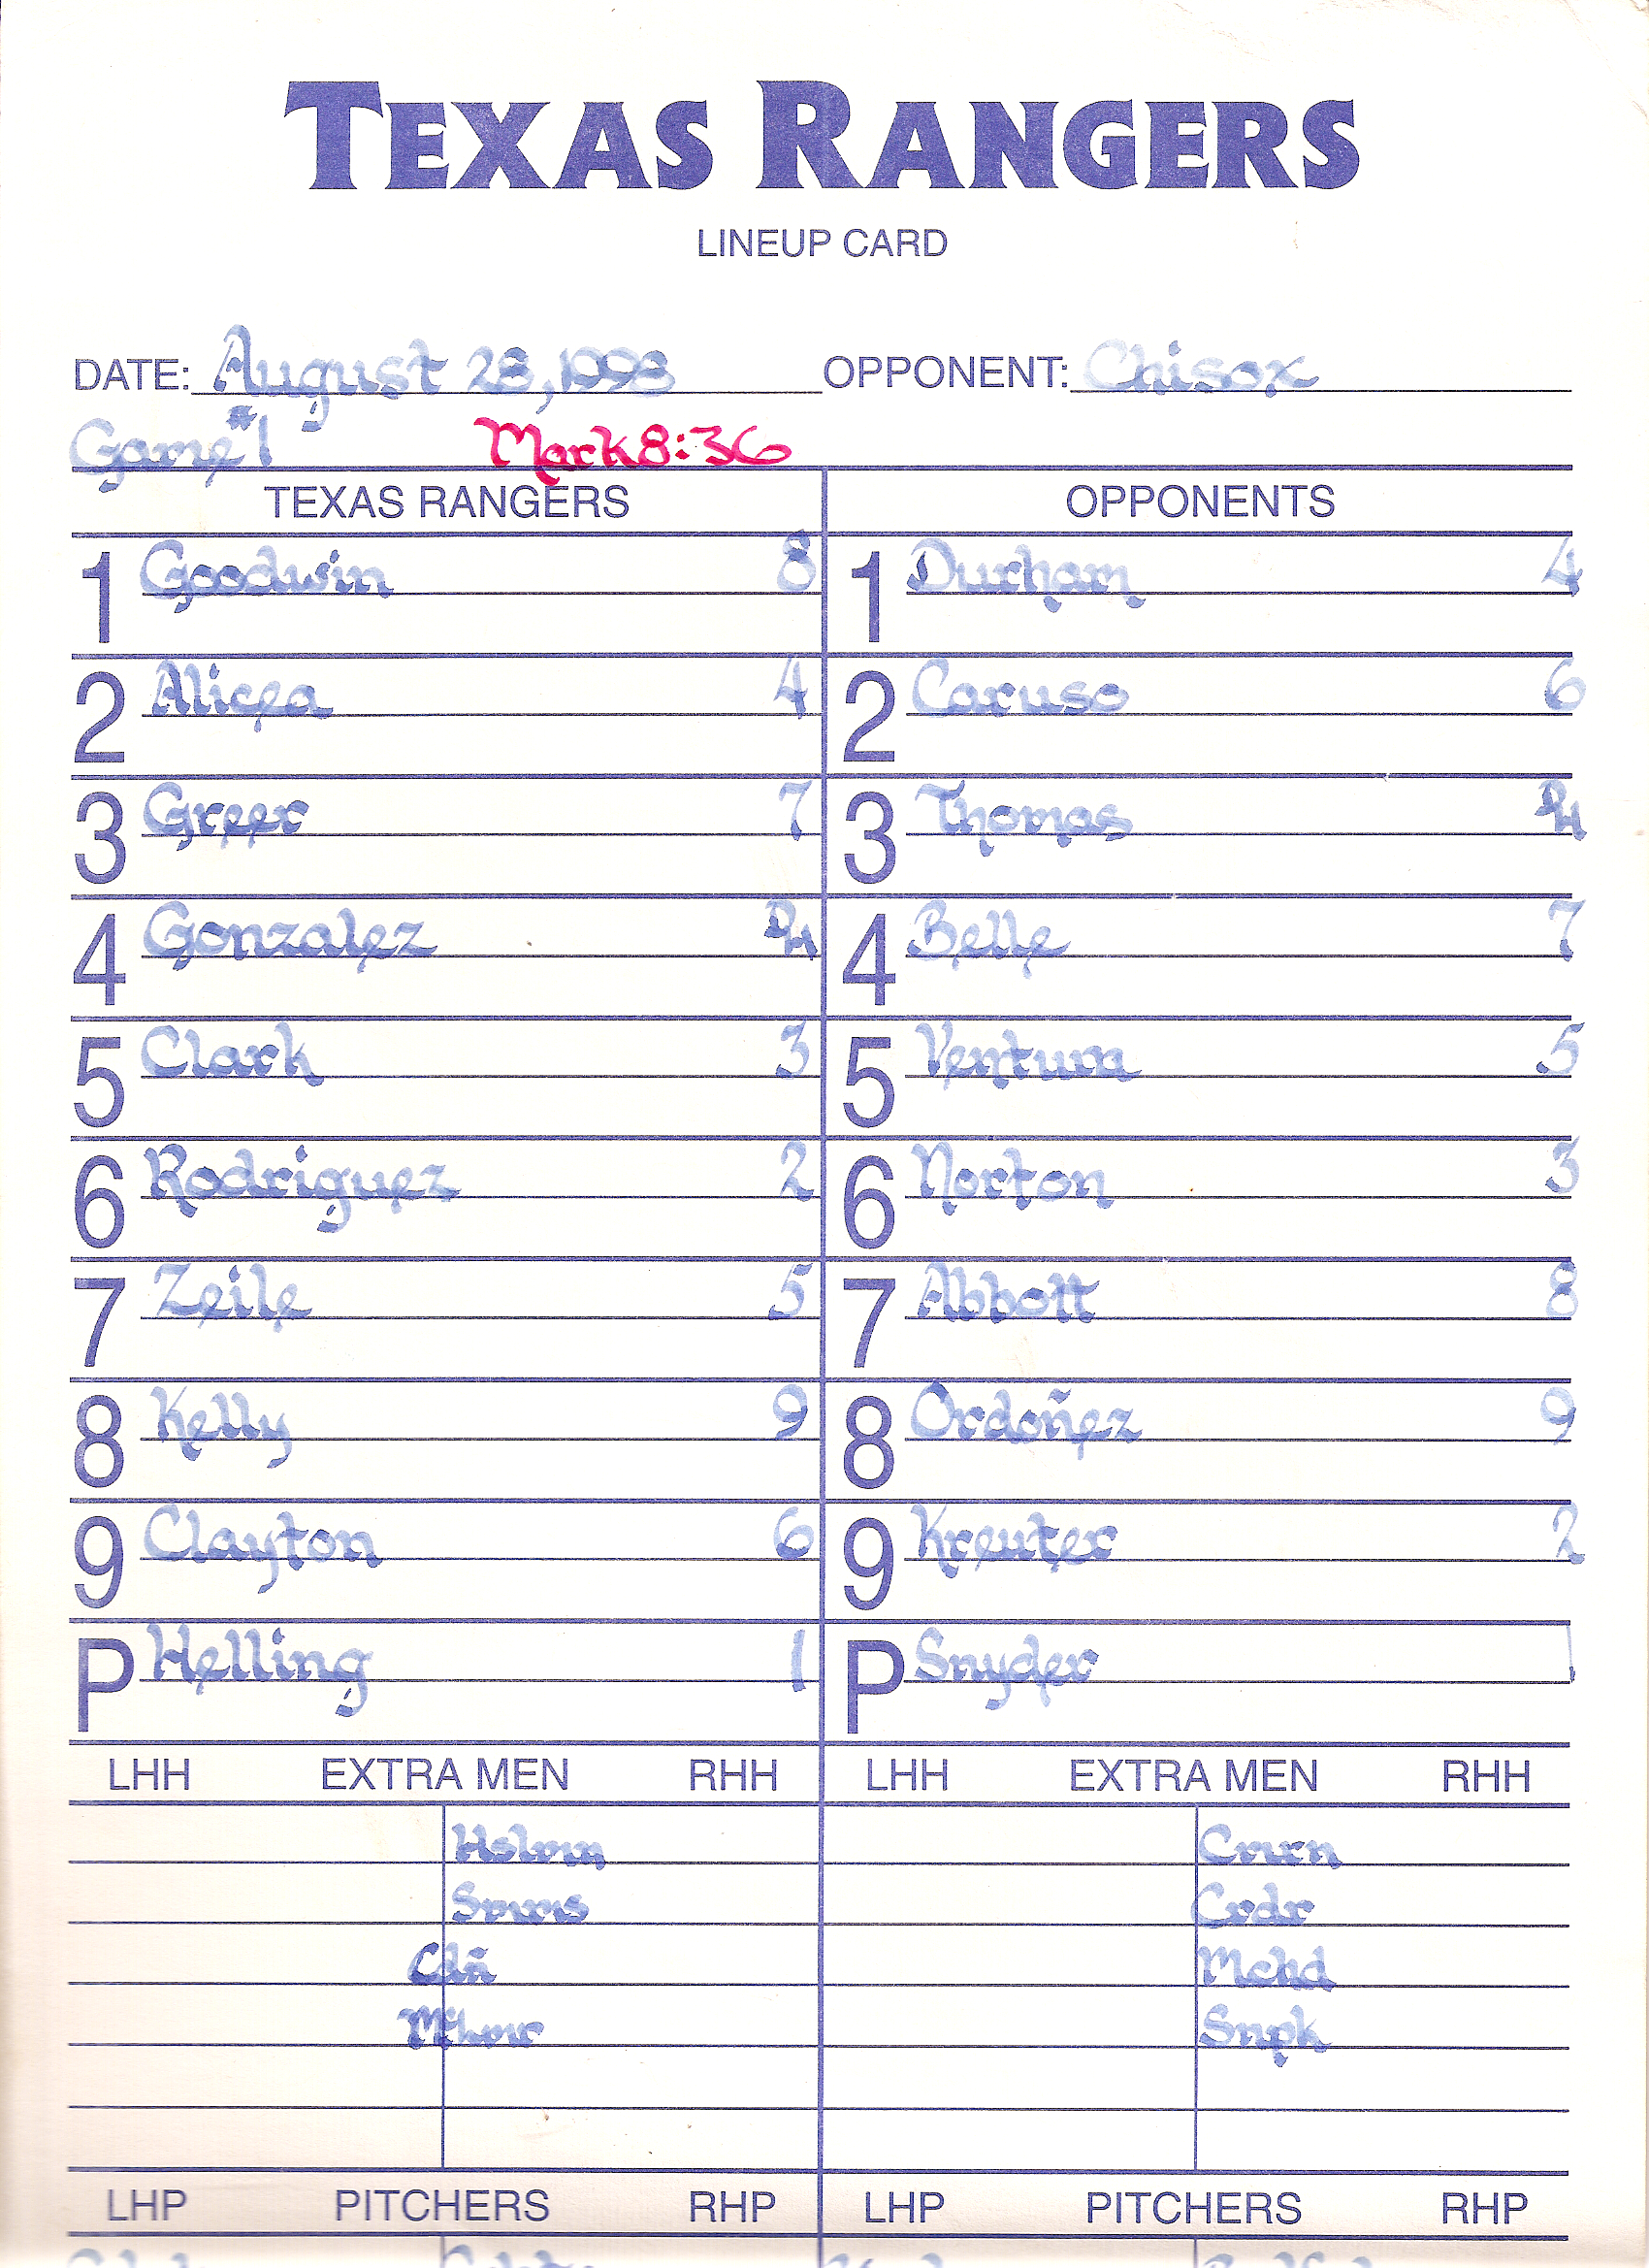 TEXAS RANGERS
LINEUP CARD
DATE: August 28, 1998 OPPONENT: Chisox
Game #1 Mark 8:36
TEXAS RANGERS OPPONENTS
1 Goodwin 8 1 Durham 4
2 Alicea 4 2 Caruso 6
3 Greer 7 3 Thomas DH
4 Gonzalez DH 4 Belle 7
5 Clark 3 5 Ventura 5
6 Rodriguez 2 6 Norton 3
7 Zeile 5 7 Abbott 8
8 Kelly 9 8 Ordoñez 9
9 Clayton 6 9 Kreuter 2
P Helling 1 P Snyder 1
LHH EXTRA MEN RHH LHH EXTRA MEN RHH
Hslmn Cmrn
Smms Crdr
Cdñ Mchd
Snpk
LHP PITCHERS RHP LHP PITCHERS RHP